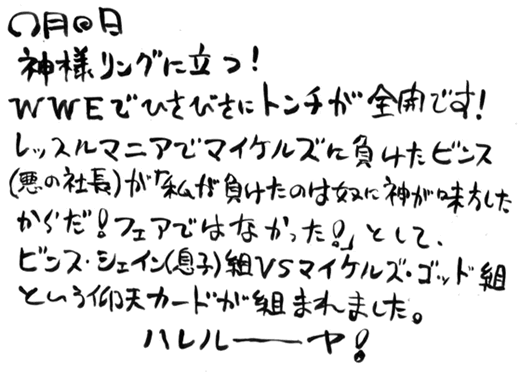 〇月〇日
神様リングに立つ！
WWEでひさびさにトンチが全開です！
レッスルマニアでマイケルズに負けたビンス
(悪の社長)が「私が負けたのは奴に神が味方した
からだ！フェアではなかった！」として、
ビンス・シェイン(息子)組VSマイケルズ・ゴッド組
という仰天カードが組まれました。
ハレルーーヤ！